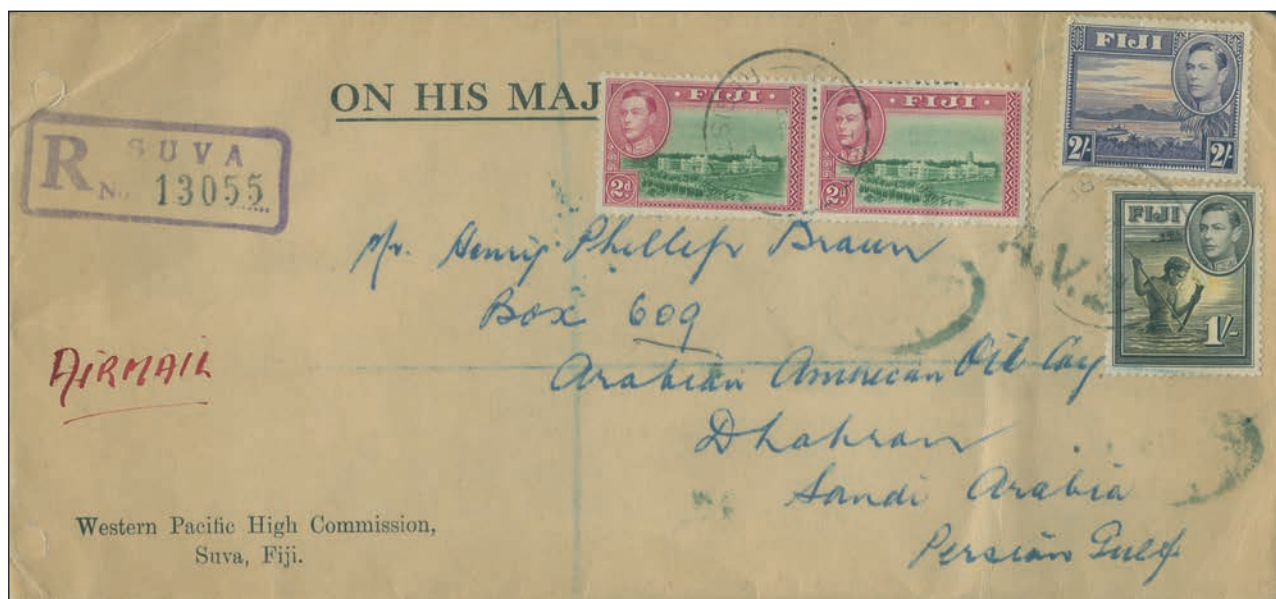 ON HIS MAJ
FIJI
2d
FIJI
2d
FIJI
2/- 2/-
FIJI
1/-
R SUVA
No. 13055
A.V.
Mr. Henry Phillips Braun
Box 609
Arabian American Oil Coy.
Dhahran
Saudi Arabia
Persian Gulf
AIRMAIL
Western Pacific High Commission,
Suva, Fiji.